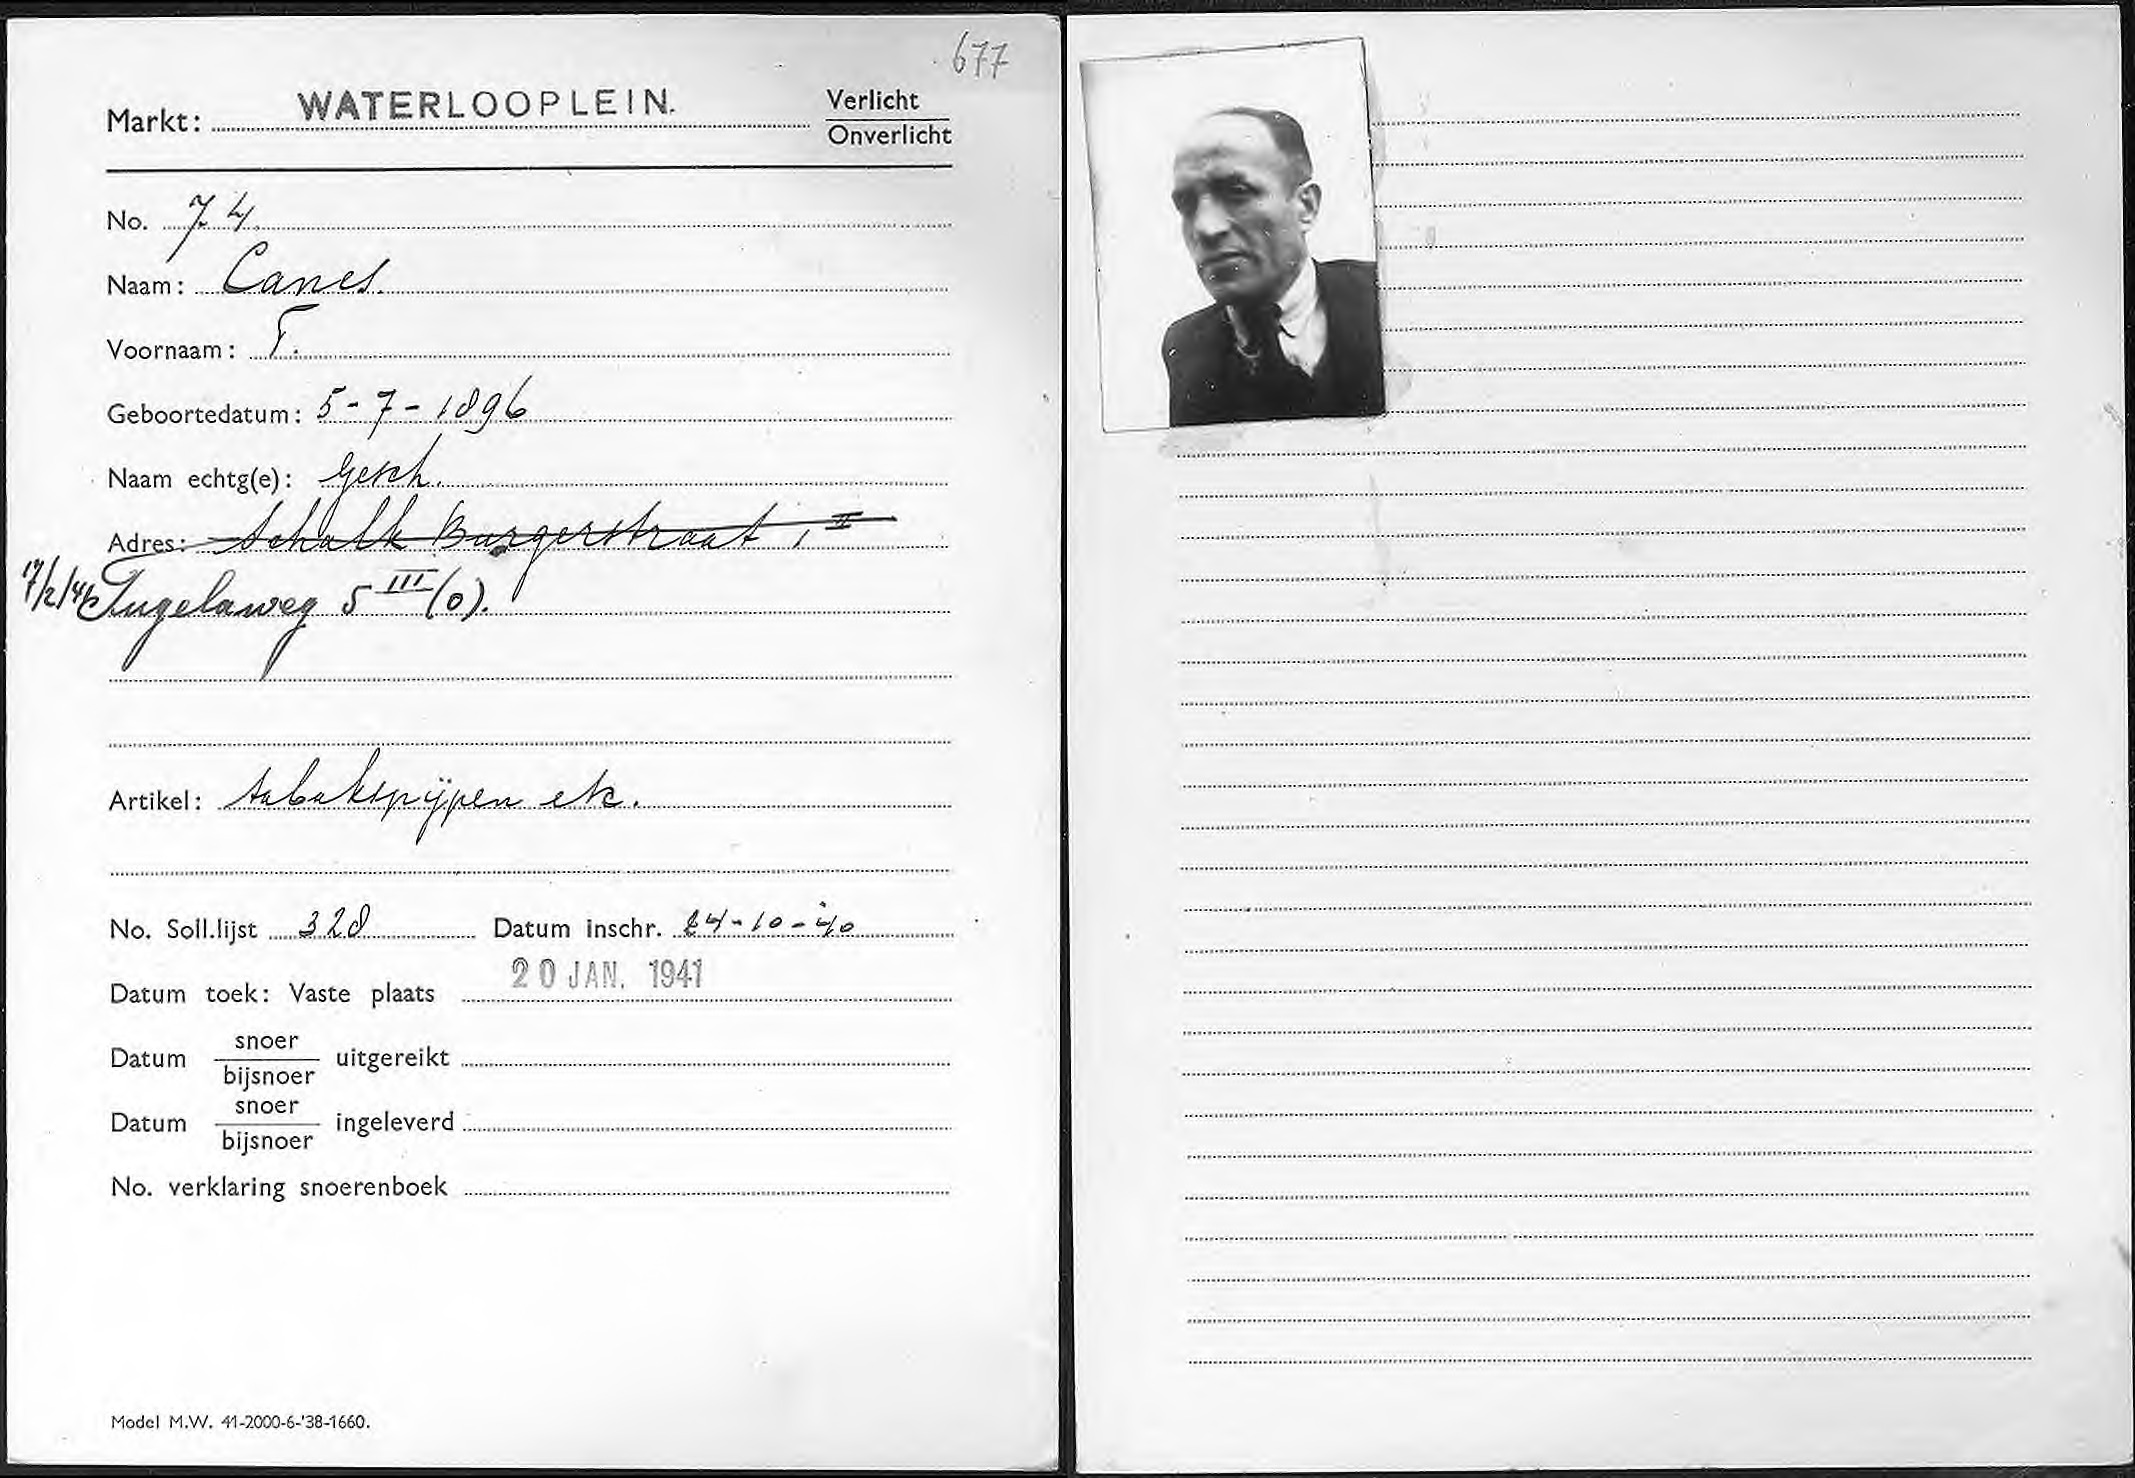 677
Markt: WATERLOOPLEIN. Verlicht
Onverlicht
No. 74.
Naam: Canes.
Voornaam:
Geboortedatum: 5-7-1896
Naam echtg(e): gesch.
Adres: Schalk Burgerstraat 1, II
17/2/42 Tugelaweg 5 III (o).
Artikel: tabakspijpen etc.
No. Soll.lijst 328 Datum inschr. 24-10-'40
Datum toek: Vaste plaats 20 JAN. 1941
Datum snoer
bijsnoer uitgereikt
Datum snoer
bijsnoer ingeleverd
No. verklaring snoerenboek
Model M.W. 41-2000-6-'38-1660.